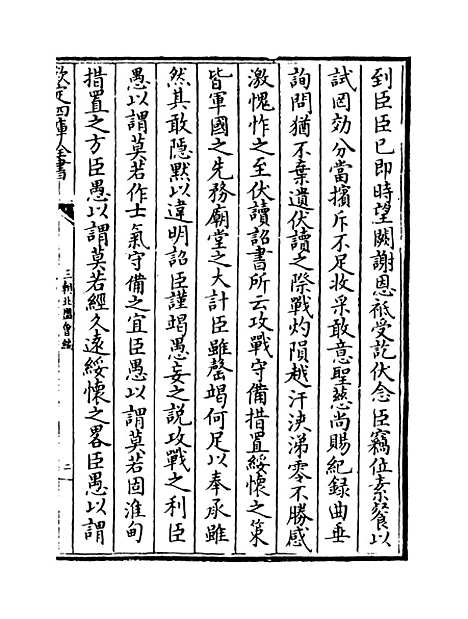 到臣臣已即時望闕謝恩祗受訖伏念臣竊位素餐以
試罔効分當擯斥不足收采敢意聖慈尚賜紀録曲垂
詢問猶不棄遺伏讀之際戰灼隕越汗浹涕零不勝感
激愧怍之至伏讀詔書所云攻戰守備措置綏懐之策
皆軍國之先務廟堂之大計臣雖罄竭何足以奉承雖
然其敢隱黙以違明詔臣謹竭愚妄之説攻戰之利臣
愚以謂莫若作士氣守備之宜臣愚以謂莫若固淮甸
措置之方臣愚以謂莫若經久逺綏懐之畧臣愚以謂
欽定四庫全書
三朝北盟會編
二